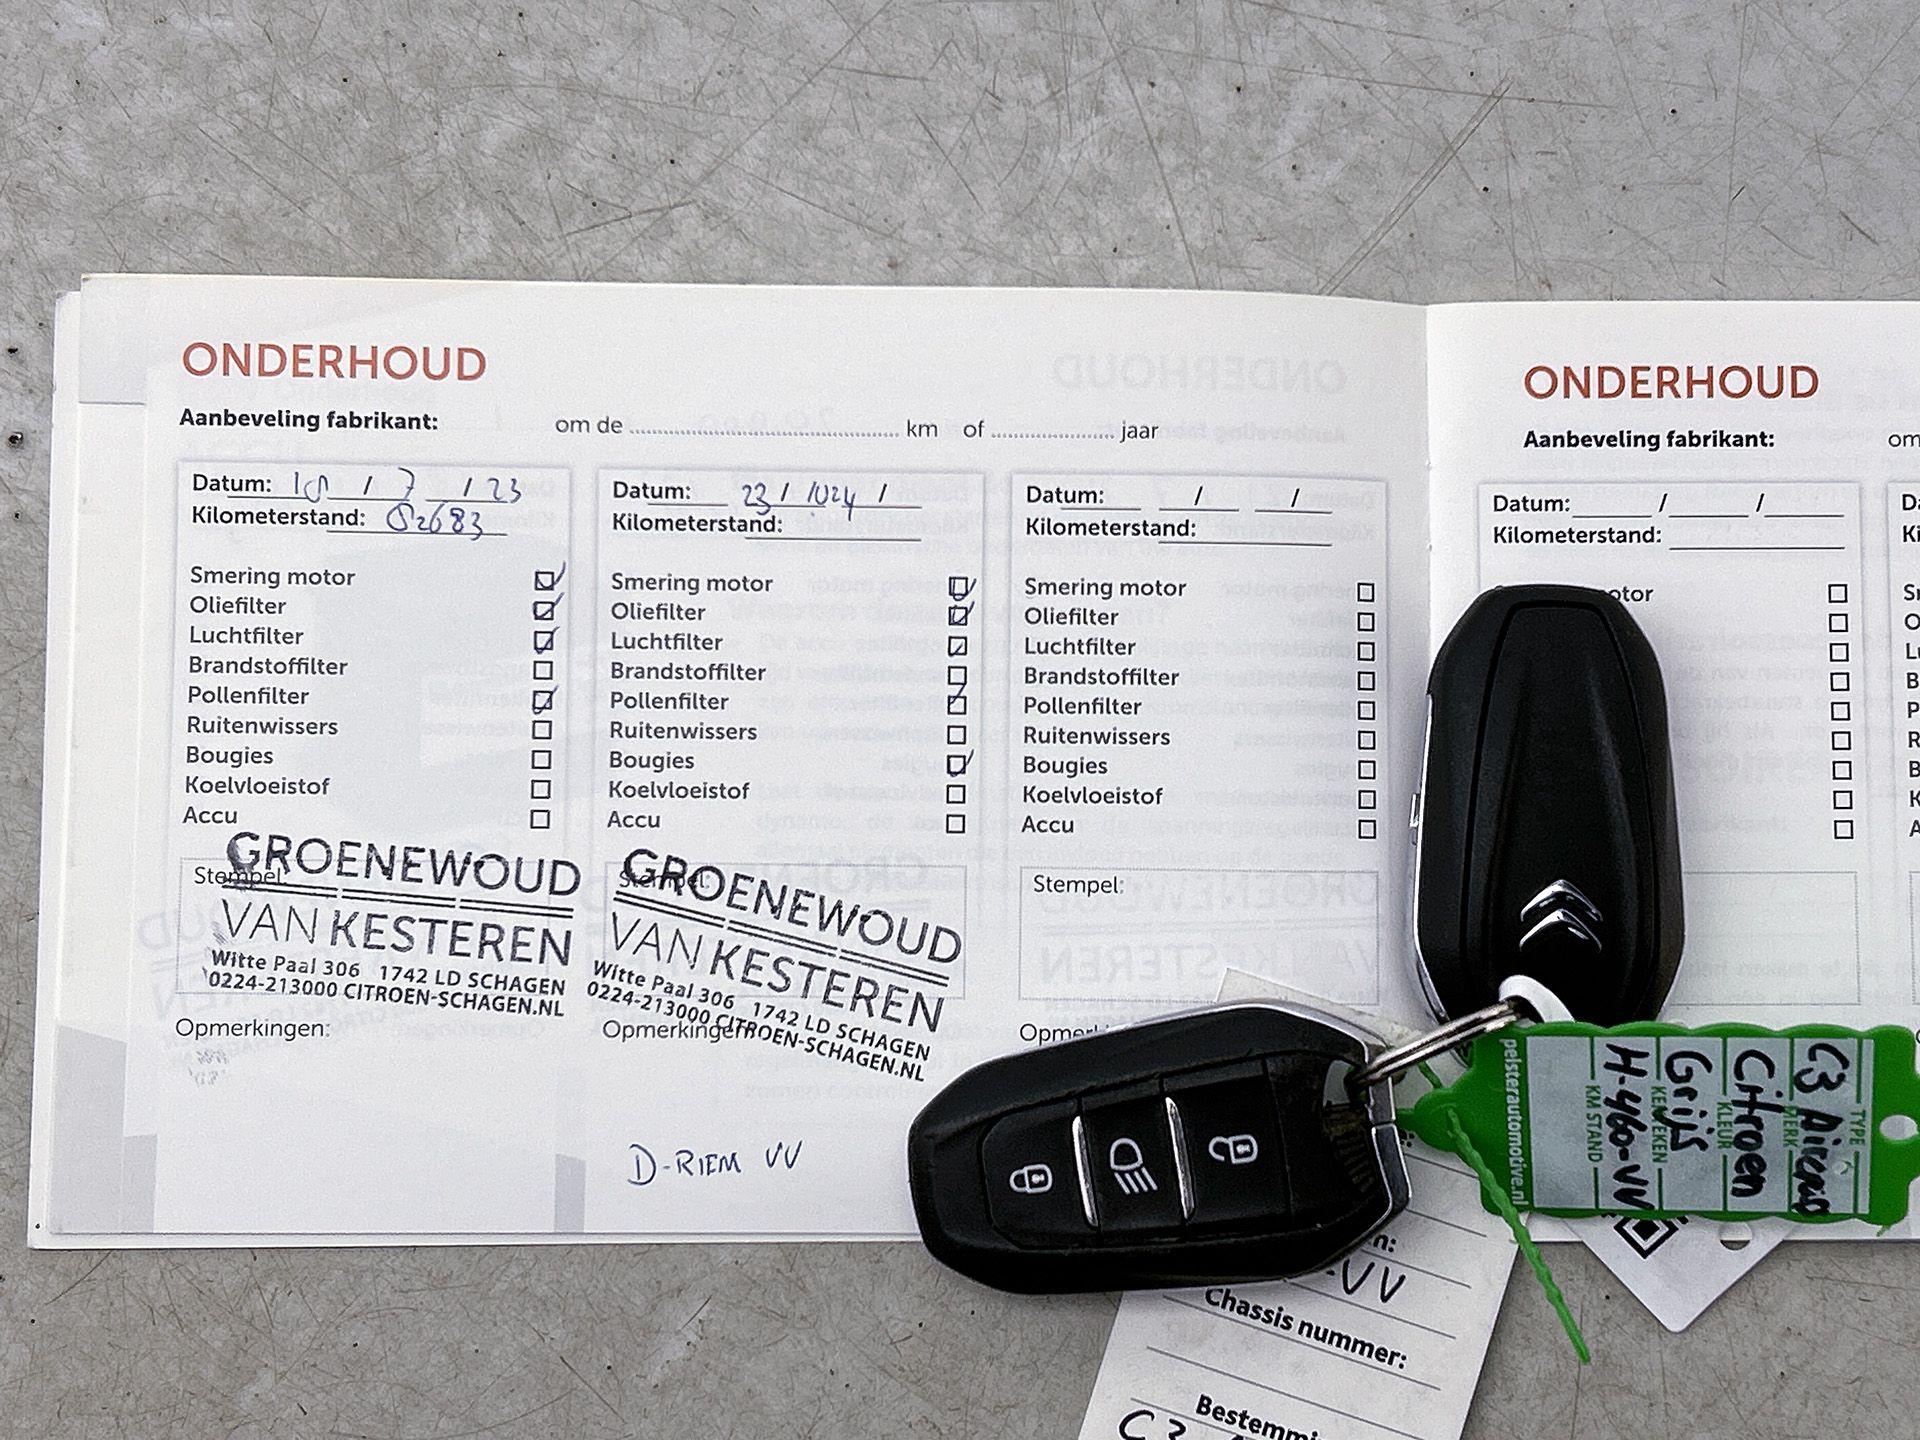 ONDERHOUD
Aanbeveling fabrikant: om de km of jaar
Datum: / 7 / 23
Kilometerstand: 52683
Smering motor
Oliefilter
Luchtfilter
Brandstoffilter
Pollenfilter
Ruitenwissers
Bougies
Koelvloeistof
Accu
Stempel:
GROENEWOUD
VAN KESTEREN
Witte Paal 306 1742 LD SCHAGEN
0224-213000 CITROEN-SCHAGEN.NL
Opmerkingen:
Datum: 23 / /
Kilometerstand:
Smering motor
Oliefilter
Luchtfilter
Brandstoffilter
Pollenfilter
Ruitenwissers
Bougies
Koelvloeistof
Accu
Stempel:
GROENEWOUD
VAN KESTEREN
Witte Paal 306 1742 LD SCHAGEN
0224-213000 CITROEN-SCHAGEN.NL
Opmerkingen:
D-RIEM VV
Datum: / /
Kilometerstand:
Smering motor
Oliefilter
Luchtfilter
Brandstoffilter
Pollenfilter
Ruitenwissers
Bougies
Koelvloeistof
Accu
Stempel:
ONDERHOUD
Aanbeveling fabrikant:
Datum: / /
Kilometerstand:
TYPE
C3 Aircross
MERK
Citroen
KLEUR
Grijs
KENTEKEN
H-460-VV
KM STAND
pelsterautomotive.nl
-VV
Chassis nummer:
C3